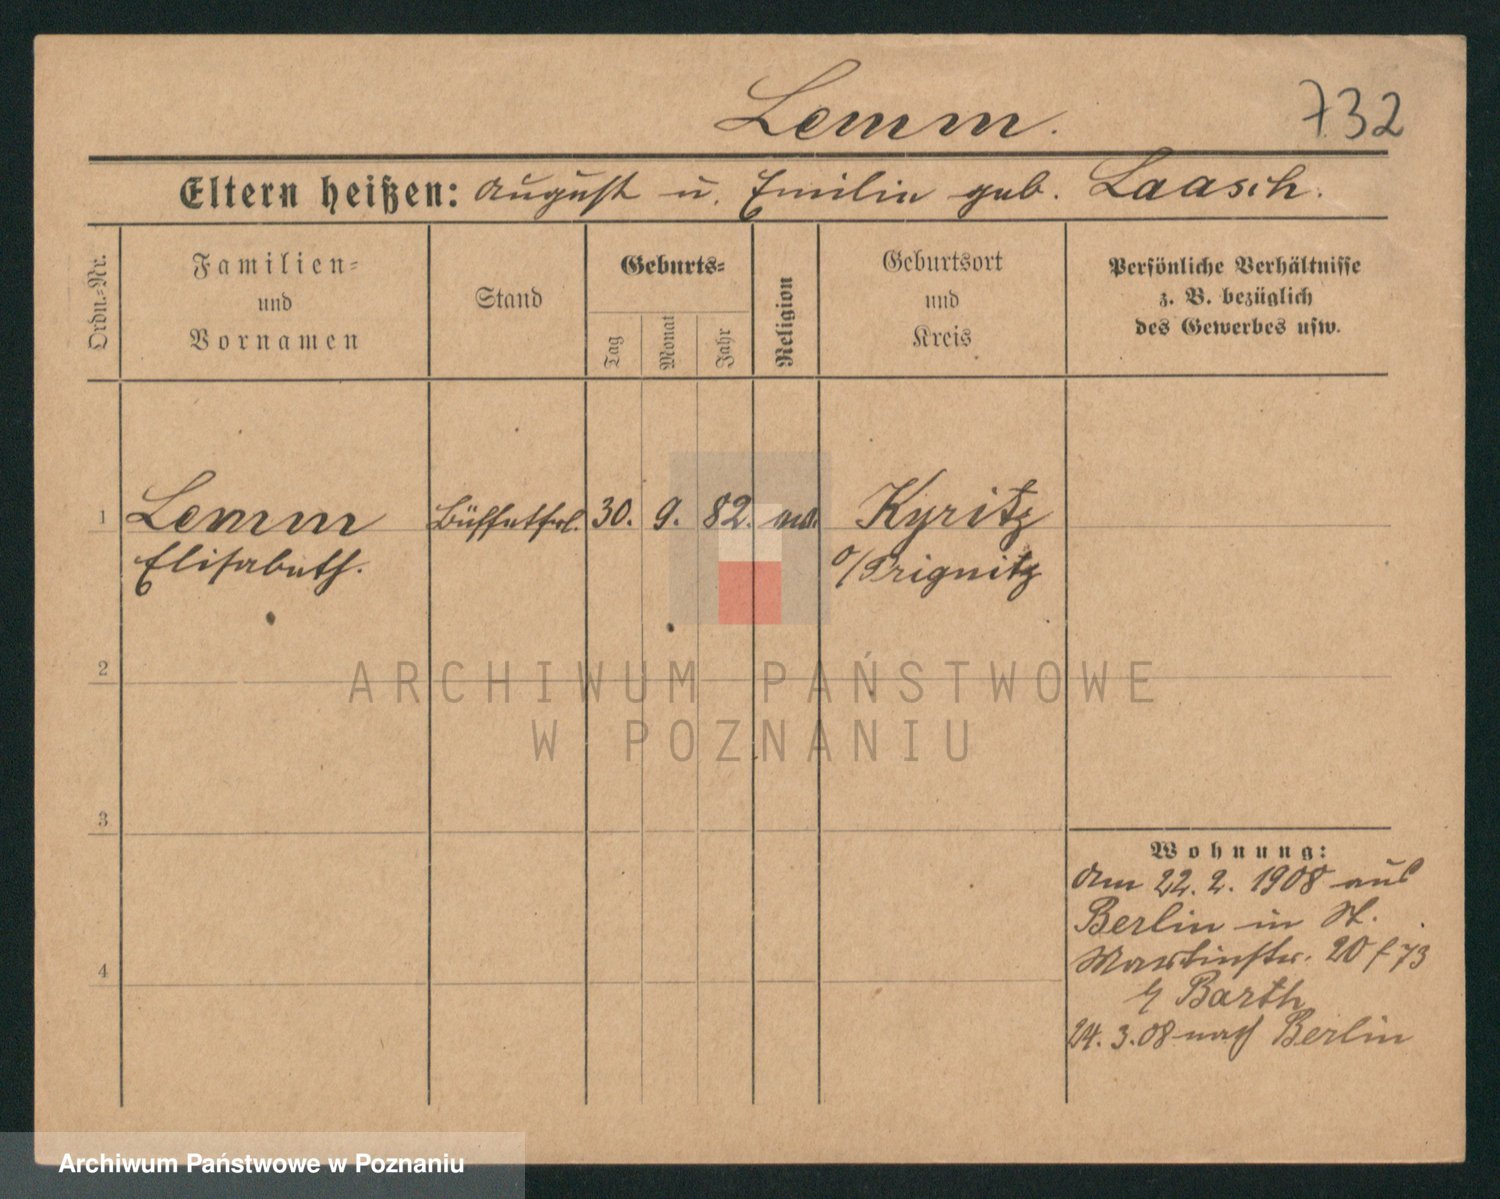 Lemm.
732
Eltern heißen: August u. Emilie geb. Laasch.
Ordn.-Nr.
Familien-
und
Vornamen
Stand
Geburts-
Tag
Monat
Jahr
Religion
Geburtsort
und
Kreis
Persönliche Verhältnisse
z. B. bezüglich
des Gewerbes usw.
1 Lemm Büffetfrl. 30. 9. 82. Kyritz
Elisabeth. /Prignitz
2
ARCHIWUM PAŃSTWOWE
W POZNANIU
3
Wohnung:
am 22. 2. 1908 aus
Berlin in St.
4
Martinstr. 20 f 73
Barth
24. 3. 08 nach Berlin
Archiwum Państwowe w Poznaniu